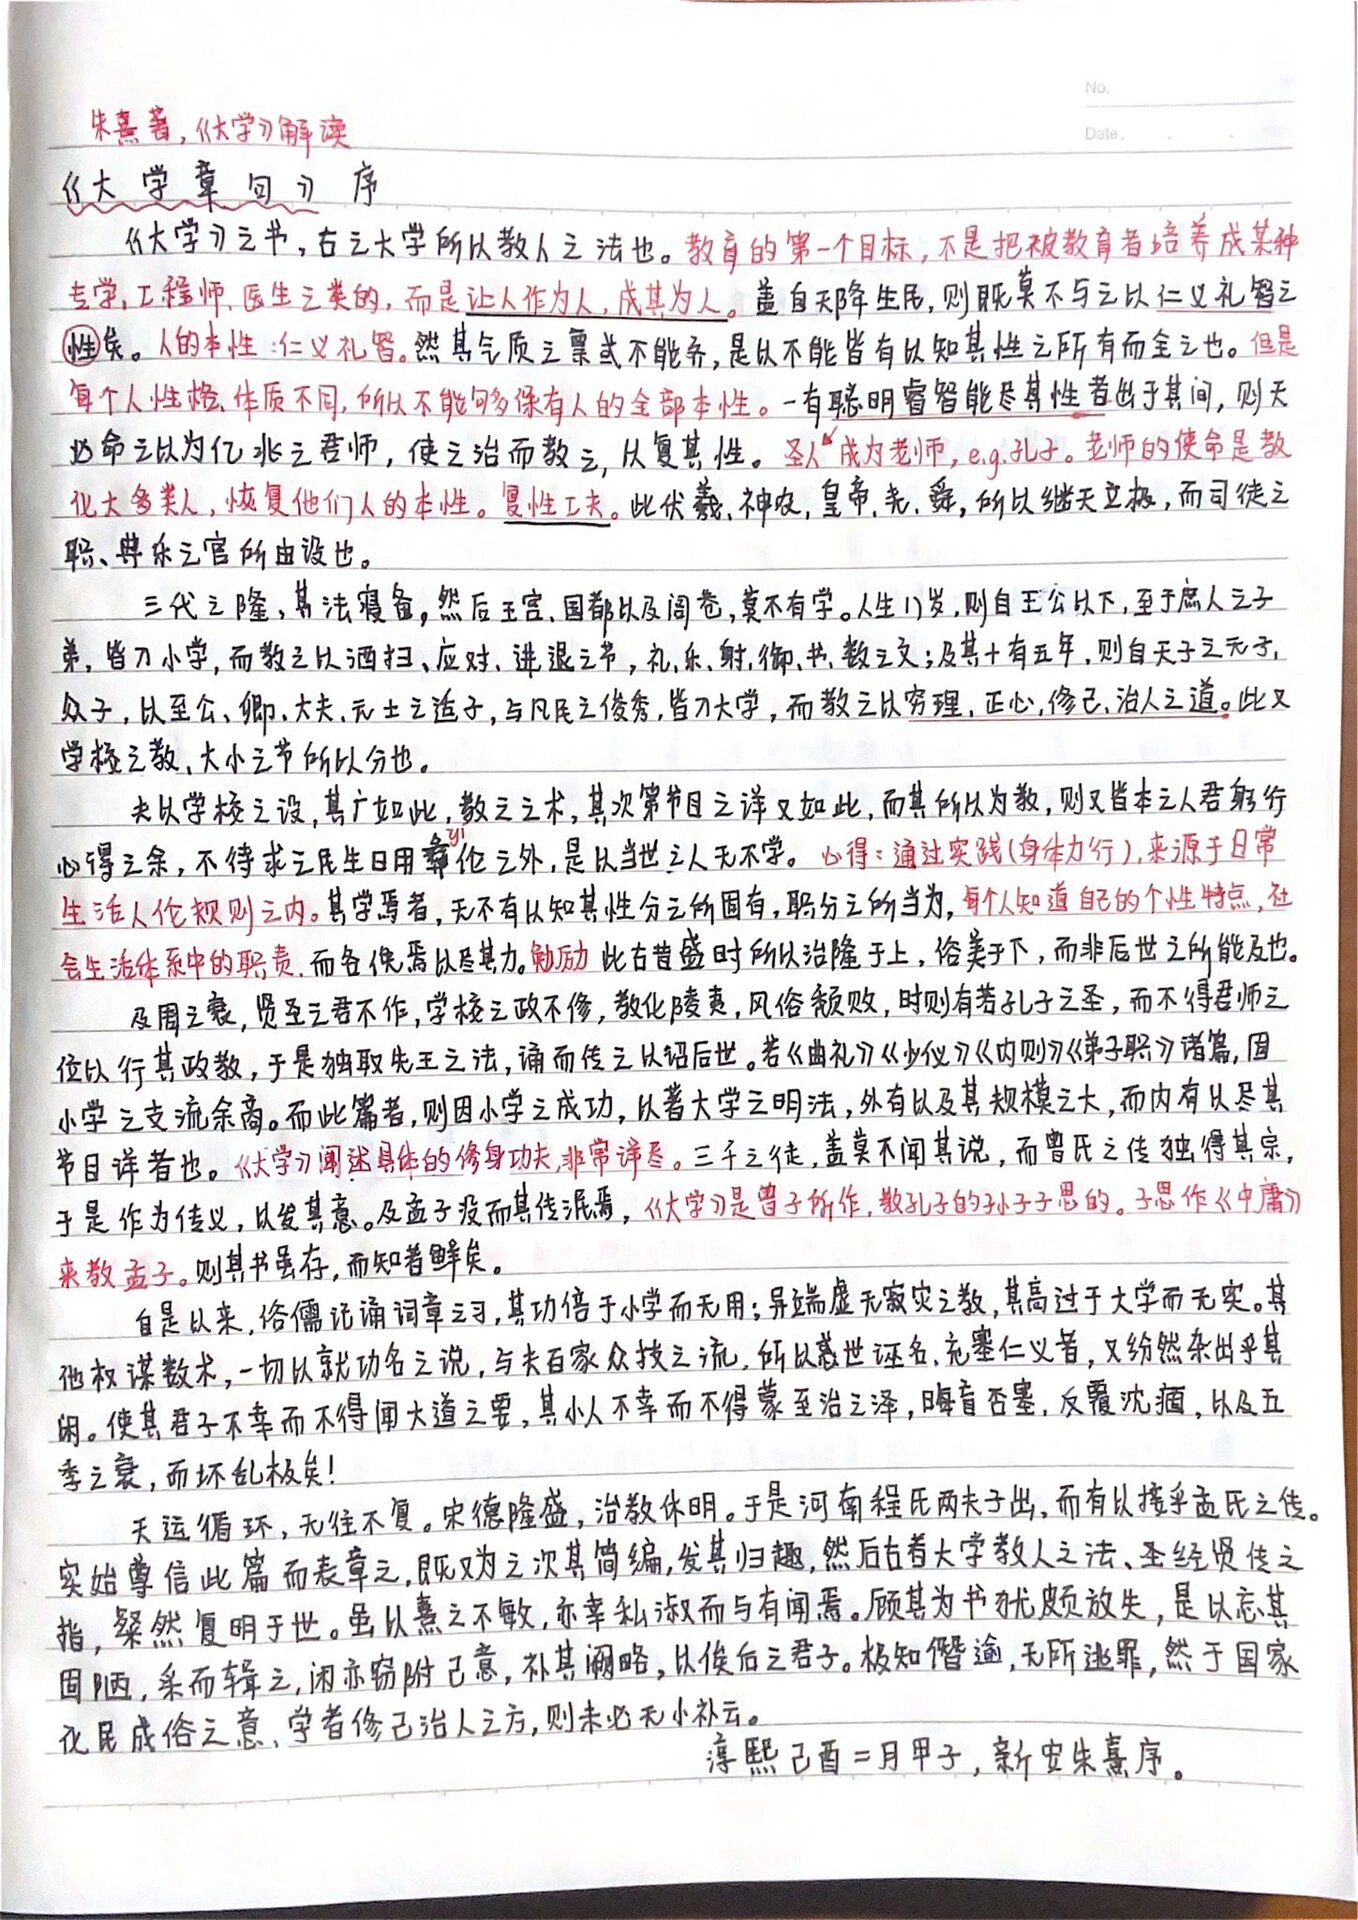 No.
Date.
朱熹著,《大学》解读
《大学章句》序
《大学》之书,古之大学所以教人之法也。教育的第一个目标,不是把被教育者培养成某种
专学,工程师、医生之类的,而是让人作为人,成其为人。盖自天降生民,则既莫不与之以仁义礼智之
性矣。人的本性:仁义礼智。然其气质之禀或不能齐,是以不能皆有以知其性之所有而全之也。但是
每个人性格、体质不同,所以不能够多保有人的全部本性。一有聪明睿智能尽其性者出于其间,则天
必命之以为亿兆之君师,使之治而教之,以复其性。圣人成为老师,e.g.孔子。老师的使命是教
化大多类人,恢复他们人的本性。复性工夫。此伏羲、神农、皇帝、尧、舜,所以继天立极,而司徒之
职、典乐之官所由设也。
三代之隆,其法寝备,然后王宫、国都以及闾巷,莫不有学。人生八岁,则自王公以下,至于庶人之子
弟,皆入小学,而教之以洒扫、应对、进退之节,礼、乐、射、御、书、数之文;及其十有五年,则自天子之元子,
众子,以至公、卿、大夫、元士之适子,与凡民之俊秀,皆入大学,而教之以穷理、正心、修己、治人之道。此又
学校之教、大小之节所以分也。
夫以学校之设,其广如此,教之之术,其次第节目之详又如此,而其所以为教,则又皆本之人君躬行
心得之余,不待求之民生日用彝yí伦之外,是以当世之人无不学。心得:通过实践(身体力行),来源于日常
生活人伦规则之内。其学焉者,无不有以知其性分之所固有,职分之所当为,每个人知道自己的个性特点,社
会生活体系中的职责,而各俛焉以尽其力。勉励 此古昔盛时所以治隆于上,俗美于下,而非后世之所能及也。
及周之衰,贤圣之君不作,学校之政不修,教化陵夷,风俗颓败,时则有若孔子之圣,而不得君师之
位以行其政教,于是独取先王之法,诵而传之以诏后世。若《曲礼》《少仪》《内则》《弟子职》诸篇,固
小学之支流余裔。而此篇者,则因小学之成功,以著大学之明法,外有以及其规模之大,而内有以尽其
节目详者也。《大学》阐述具体的修身功夫,非常详尽。三千之徒,盖莫不闻其说,而曾氏之传独得其宗,
于是作为传义,以发其意。及孟子没而其传泯焉,《大学》是曾子所作,教孔子的孙子子思的。子思作《中庸》
来教孟子。则其书虽存,而知者鲜矣。
自是以来,俗儒记诵词章之习,其功倍于小学而无用;异端虚无寂灭之教,其高过于大学而无实。其
他权谋数术,一切以就功名之说,与夫百家众技之流,所以惑世诬名、充塞仁义者,又纷然杂出乎其
闲。使其君子不幸而不得闻大道之要,其小人不幸而不得蒙至治之泽,晦盲否塞,反覆沈痼,以及五
季之衰,而坏乱极矣!
天运循环,无往不复。宋德隆盛,治教休明。于是河南程氏两夫子出,而有以接乎孟氏之传。
实始尊信此篇而表章之,既又为之次其简编,发其归趣,然后古者大学教人之法、圣经贤传之
指,粲然复明于世。虽以熹之不敏,亦幸私淑而与有闻焉。顾其为书犹颇放失,是以忘其
固陋,采而辑之,闲亦窃附己意,补其阙略,以俟后之君子。极知僭逾,无所逃罪,然于国家
化民成俗之意、学者修己治人之方,则未必无小补云。
淳熙己酉二月甲子,新安朱熹序。